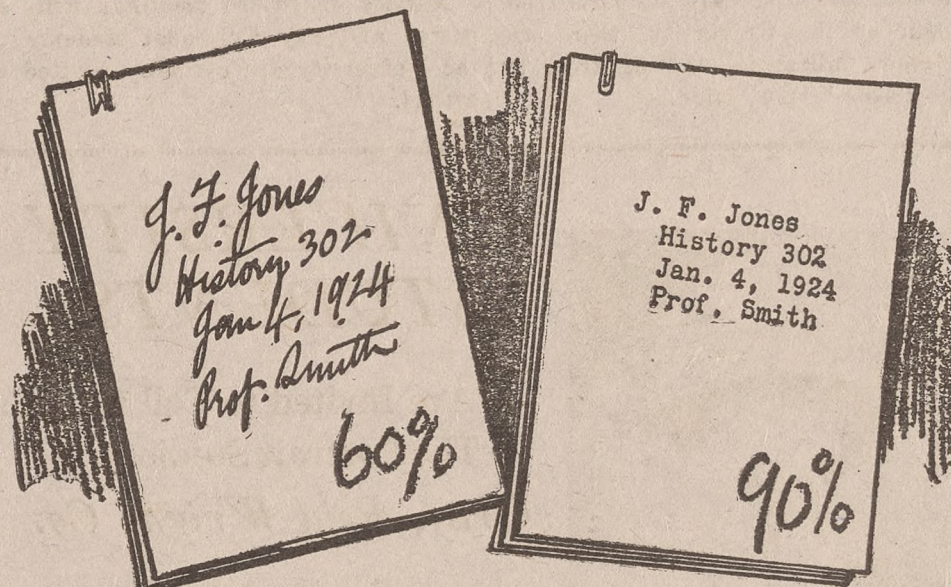 J. F. Jones
History 302
Jan 4, 1924
Prof. Smith
60%
J. F. Jones
History 302
Jan. 4, 1924
Prof. Smith
90%